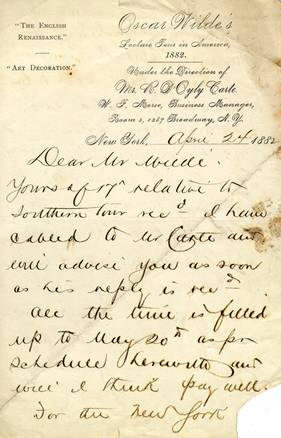 "THE ENGLISH
RENAISSANCE."
"ART DECORATION."
Oscar Wilde's
Lecture Tour in America,
1882.
Under the Direction of
Mr. R. D'Oyly Carte.
W. F. Morse, Business Manager,
Room 2, 1267 Broadway, N. Y.
New York, April 24 1882
Dear Mr
Yours of 17th relative to
Southern Tour rec'd. I have
cabled to Mr Carte and
will advise you as soon
as his reply is rec'd
All the time is filled
up to May 20th as per
schedule herewith and
will I think pay well.
For the New York